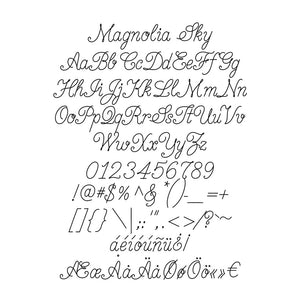 Magnolia Sky
AaBbCcDdEeFfGg
HhIiJjKkLlMmNn
OoPpQqRrSsTtUuVv
WwXxYyZz
0123456789
!@#$%^& *()__=+
[]{}\|;:'",.<>/?`~
áéíóúñüå¡
ÆæÀàÄäØøÖö«»€